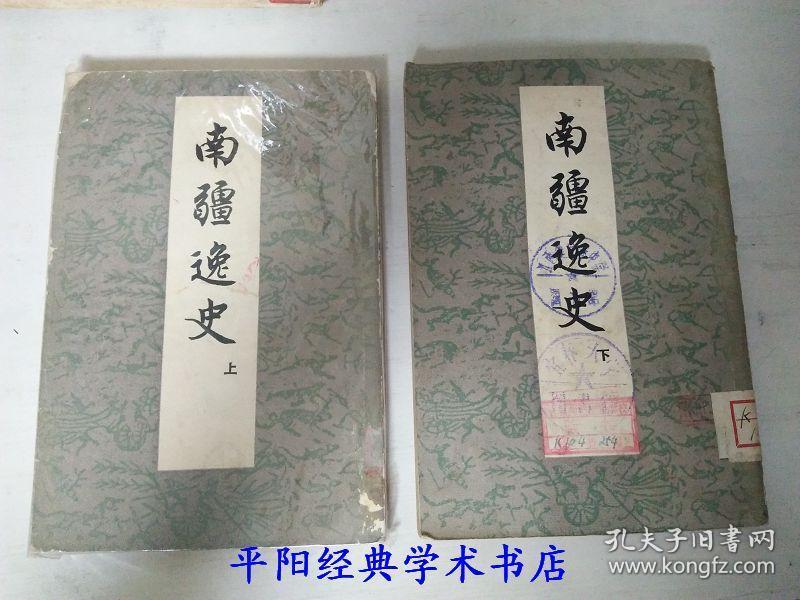 南疆逸史
上
南疆逸史
下
K104 254
K
平阳经典学术书店
孔夫子旧书网
www.kongfz.com